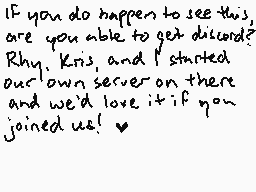 If you do happen to see this,
are you able to get discord?
Rhy, Kris, and I started
our own server on there
and we'd love it if you
joined us! ♥